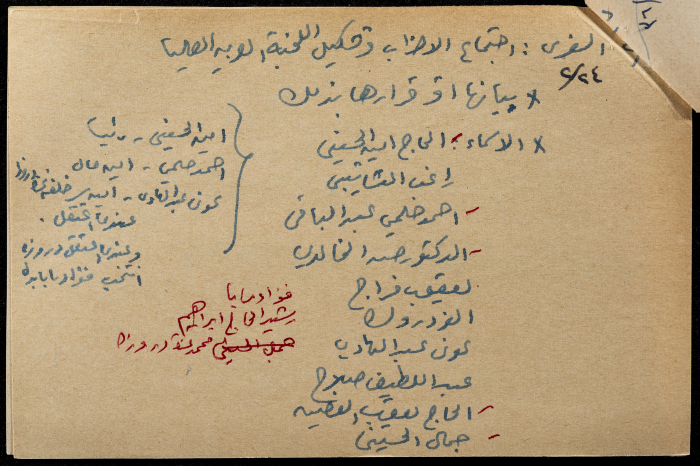 السفري : اجتماع الاحزاب وتشكيل اللجنة العربية العليا
٢/٢٤
* بيانها او قرارها بذلك
* الاسماء : الحاج امين الحسيني
راغب النشاشيبي
احمد حلمي عبد الباقي
الدكتور حسين الخالدي
يعقوب فراج
الفرد روك
عوني عبد الهادي
عبد اللطيف صلاح
الحاج يعقوب الغصين
جمال الحسيني
امين الحسيني - رئيسا
احمد حلمي - امين مال
عوني عبد الهادي - امين سر خلفه دروزة
عندما اعتقل .
وعندما اعتقل دروزة
انتخب فؤاد سابا بدله
فؤاد سابا
رشيد الحاج ابراهيم
جمال الحسيني محمد عزة دروزة